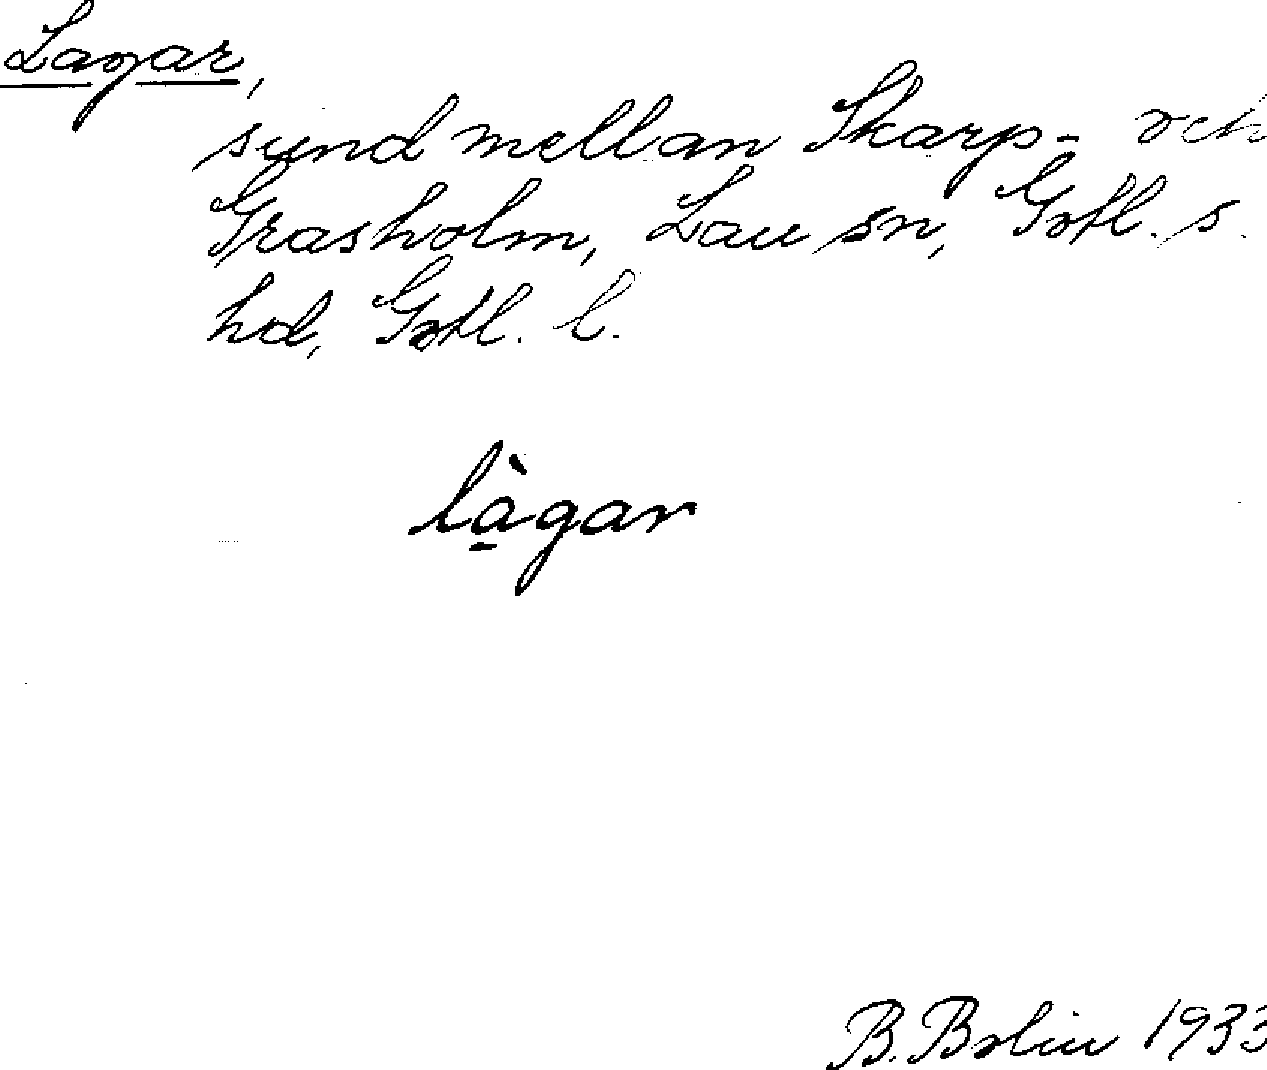 Lagar,
sund mellan Skarp- och
Grasholm, Lau sn, Gotl. s.
hd, Gotl. l.
là̱gar
B. Bolin 1933